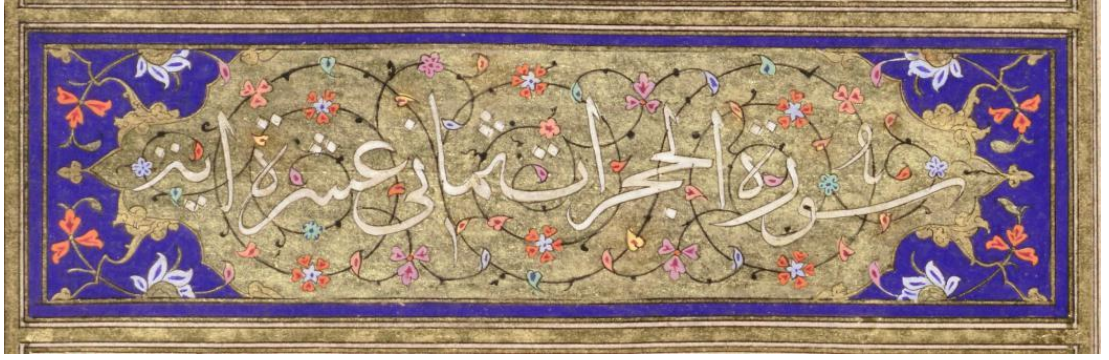 سُورة الحجرات ثمانى عشرة اية